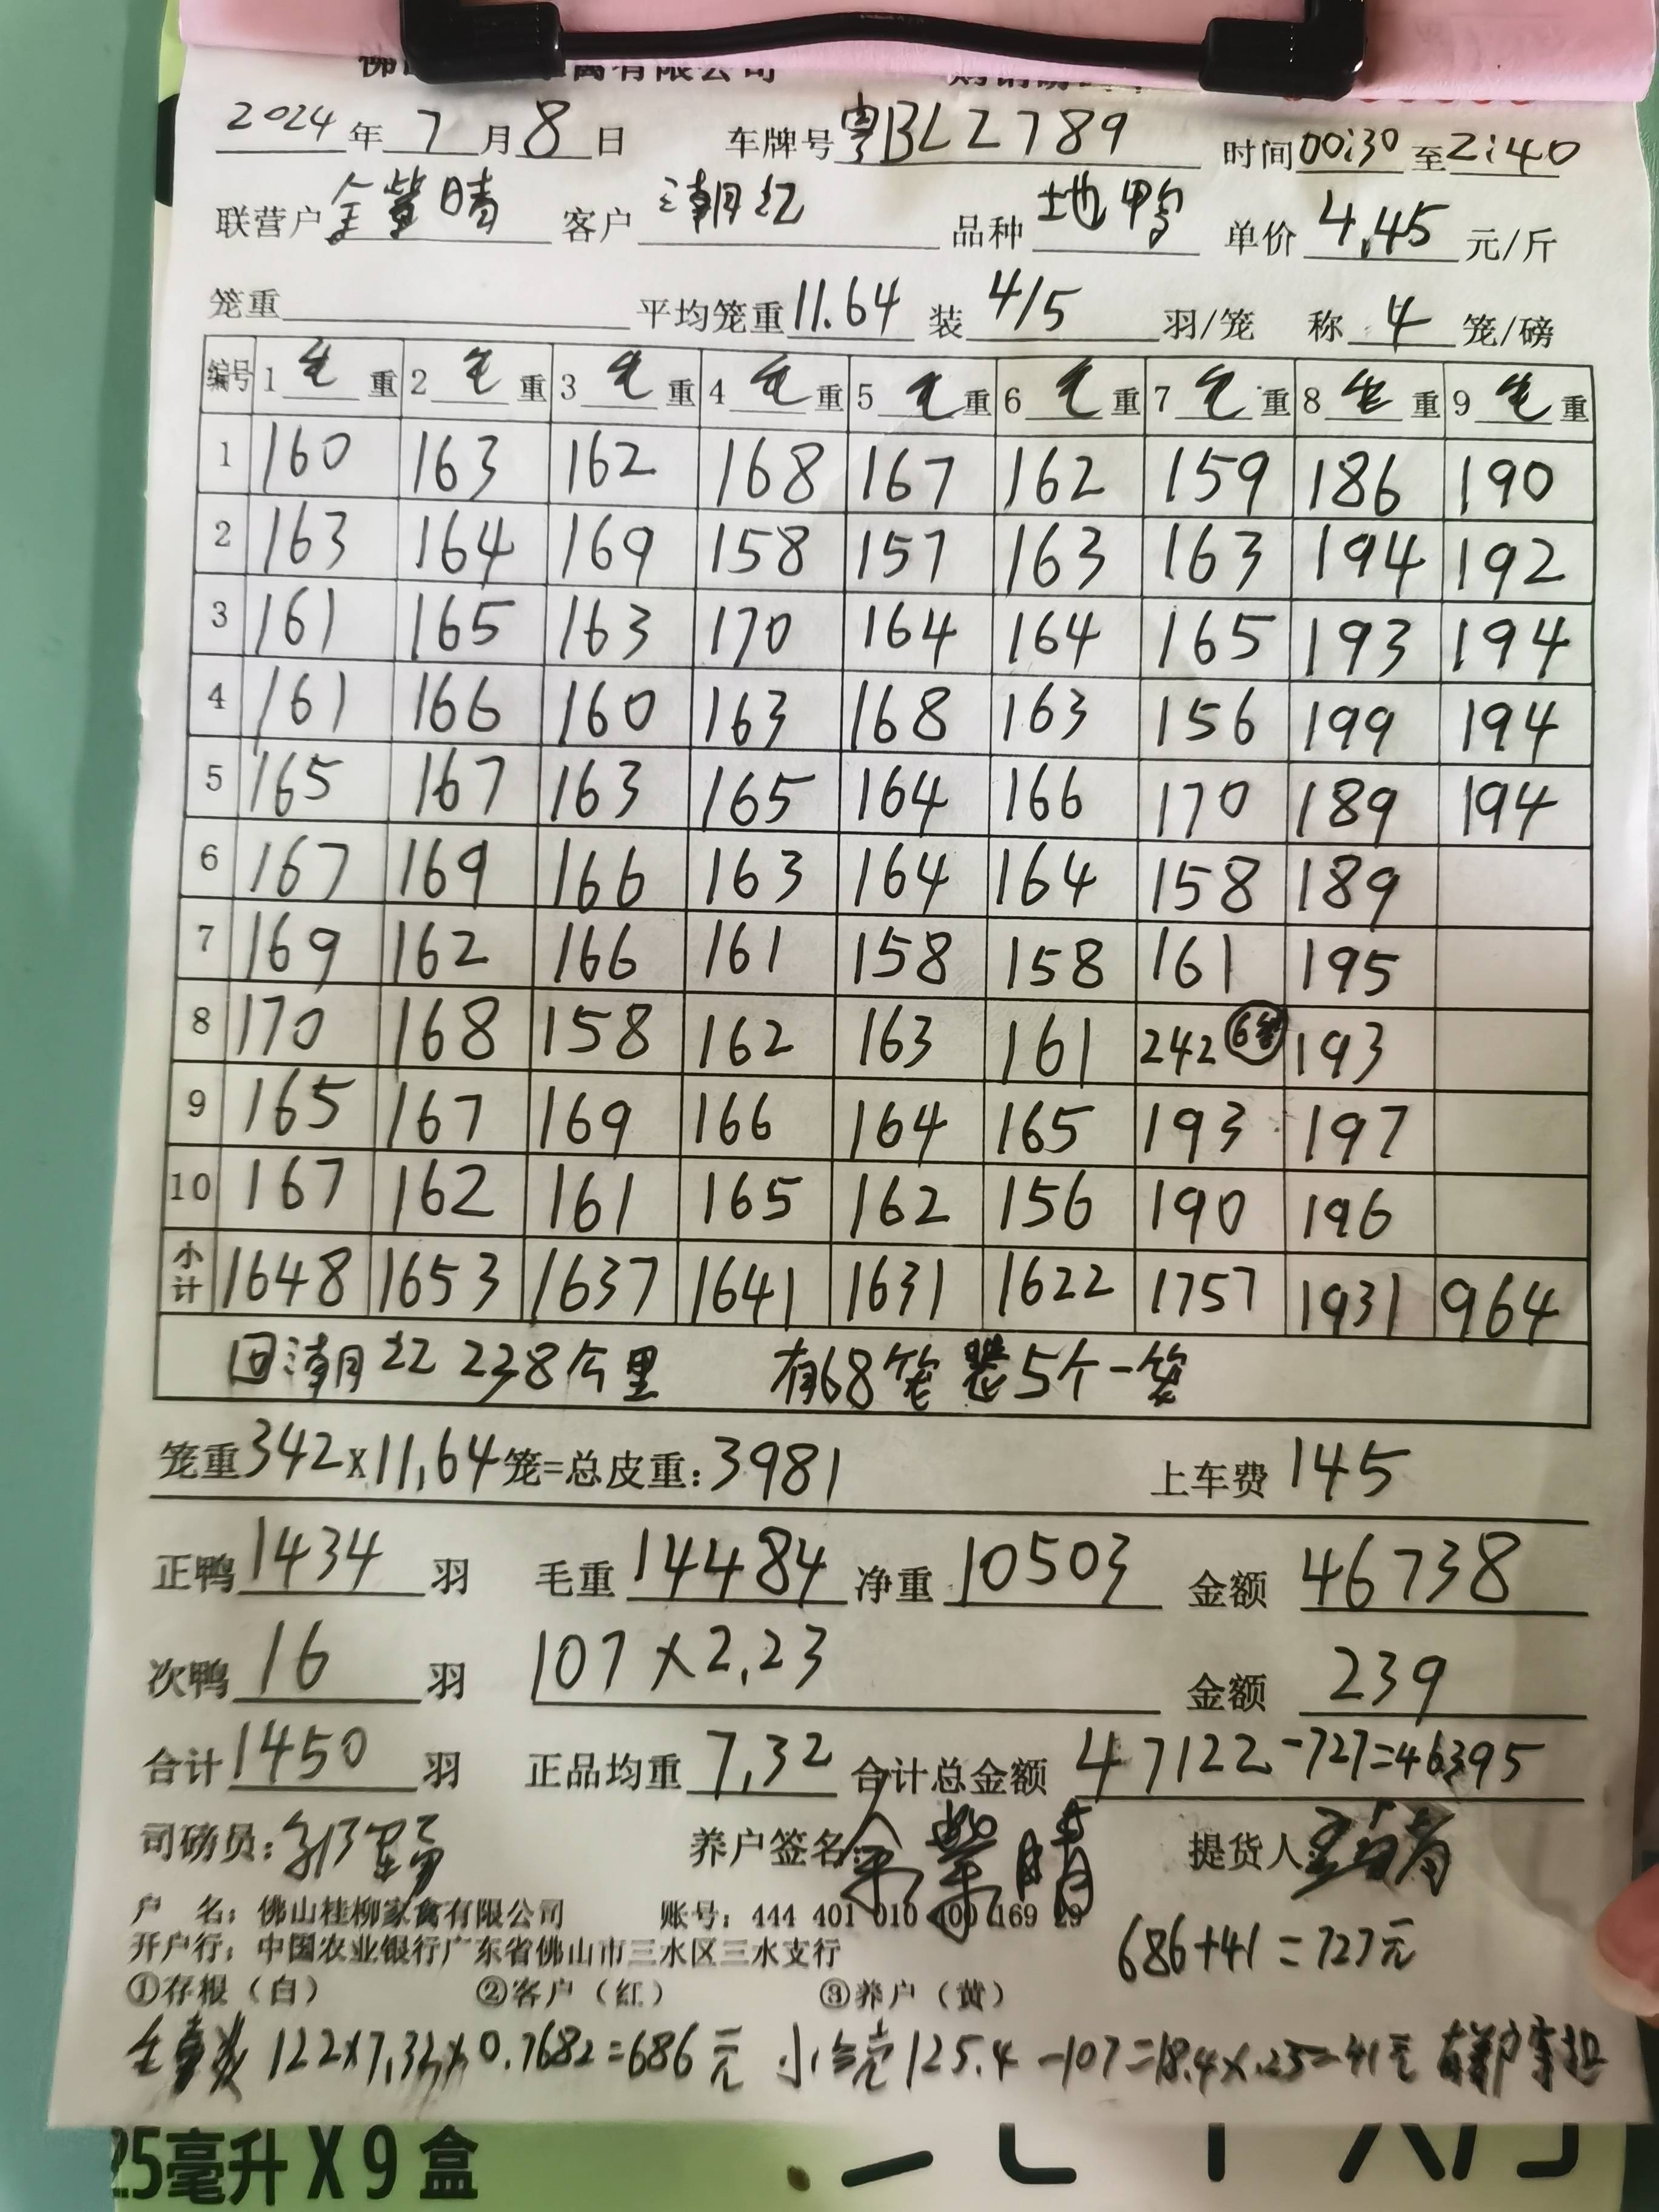 2024年7月8日 车牌号粤BLZ789 时间00:30至2:40
联营户 客户潮红 品种地鸭 单价4.45元/斤
笼重 平均笼重11.64 装4/5羽/笼 称4笼/磅
编号 1毛重 2毛重 3毛重 4毛重 5毛重 6毛重 7毛重 8毛重 9毛重
1 160 163 162 168 167 162 159 186 190
2 163 164 169 158 157 163 163 194 192
3 161 165 163 170 164 164 165 193 194
4 161 166 160 163 168 163 156 199 194
5 165 167 163 165 164 166 170 189 194
6 167 169 166 163 164 164 158 189
7 169 162 166 161 158 158 161 195
8 170 168 158 162 163 161 242 6笼 193
9 165 167 169 166 164 165 193 197
10 167 162 161 165 162 156 190 196
小计 1648 1653 1637 1641 1631 1622 1757 1931 964
回潮红238公里 有68笼装5个一笼
笼重342×11.64笼=总皮重:3981 上车费145
正鸭1434羽 毛重14484 净重10503 金额46738
次鸭16羽 107×2.23 金额239
合计1450羽 正品均重7.32 合计总金额47122-727=46395
司磅员: 养户签名: 提货人
户 名:佛山桂柳家禽有限公司 账号:444 401 010 400 169 29
开户行:中国农业银行广东省佛山市三水区三水支行
686+41=727元
①存根(白) ②客户(红) ③养户(黄)
122×7.32×0.7682=686元 125.4-107=18.4×2.25=41元
25毫升X9盒